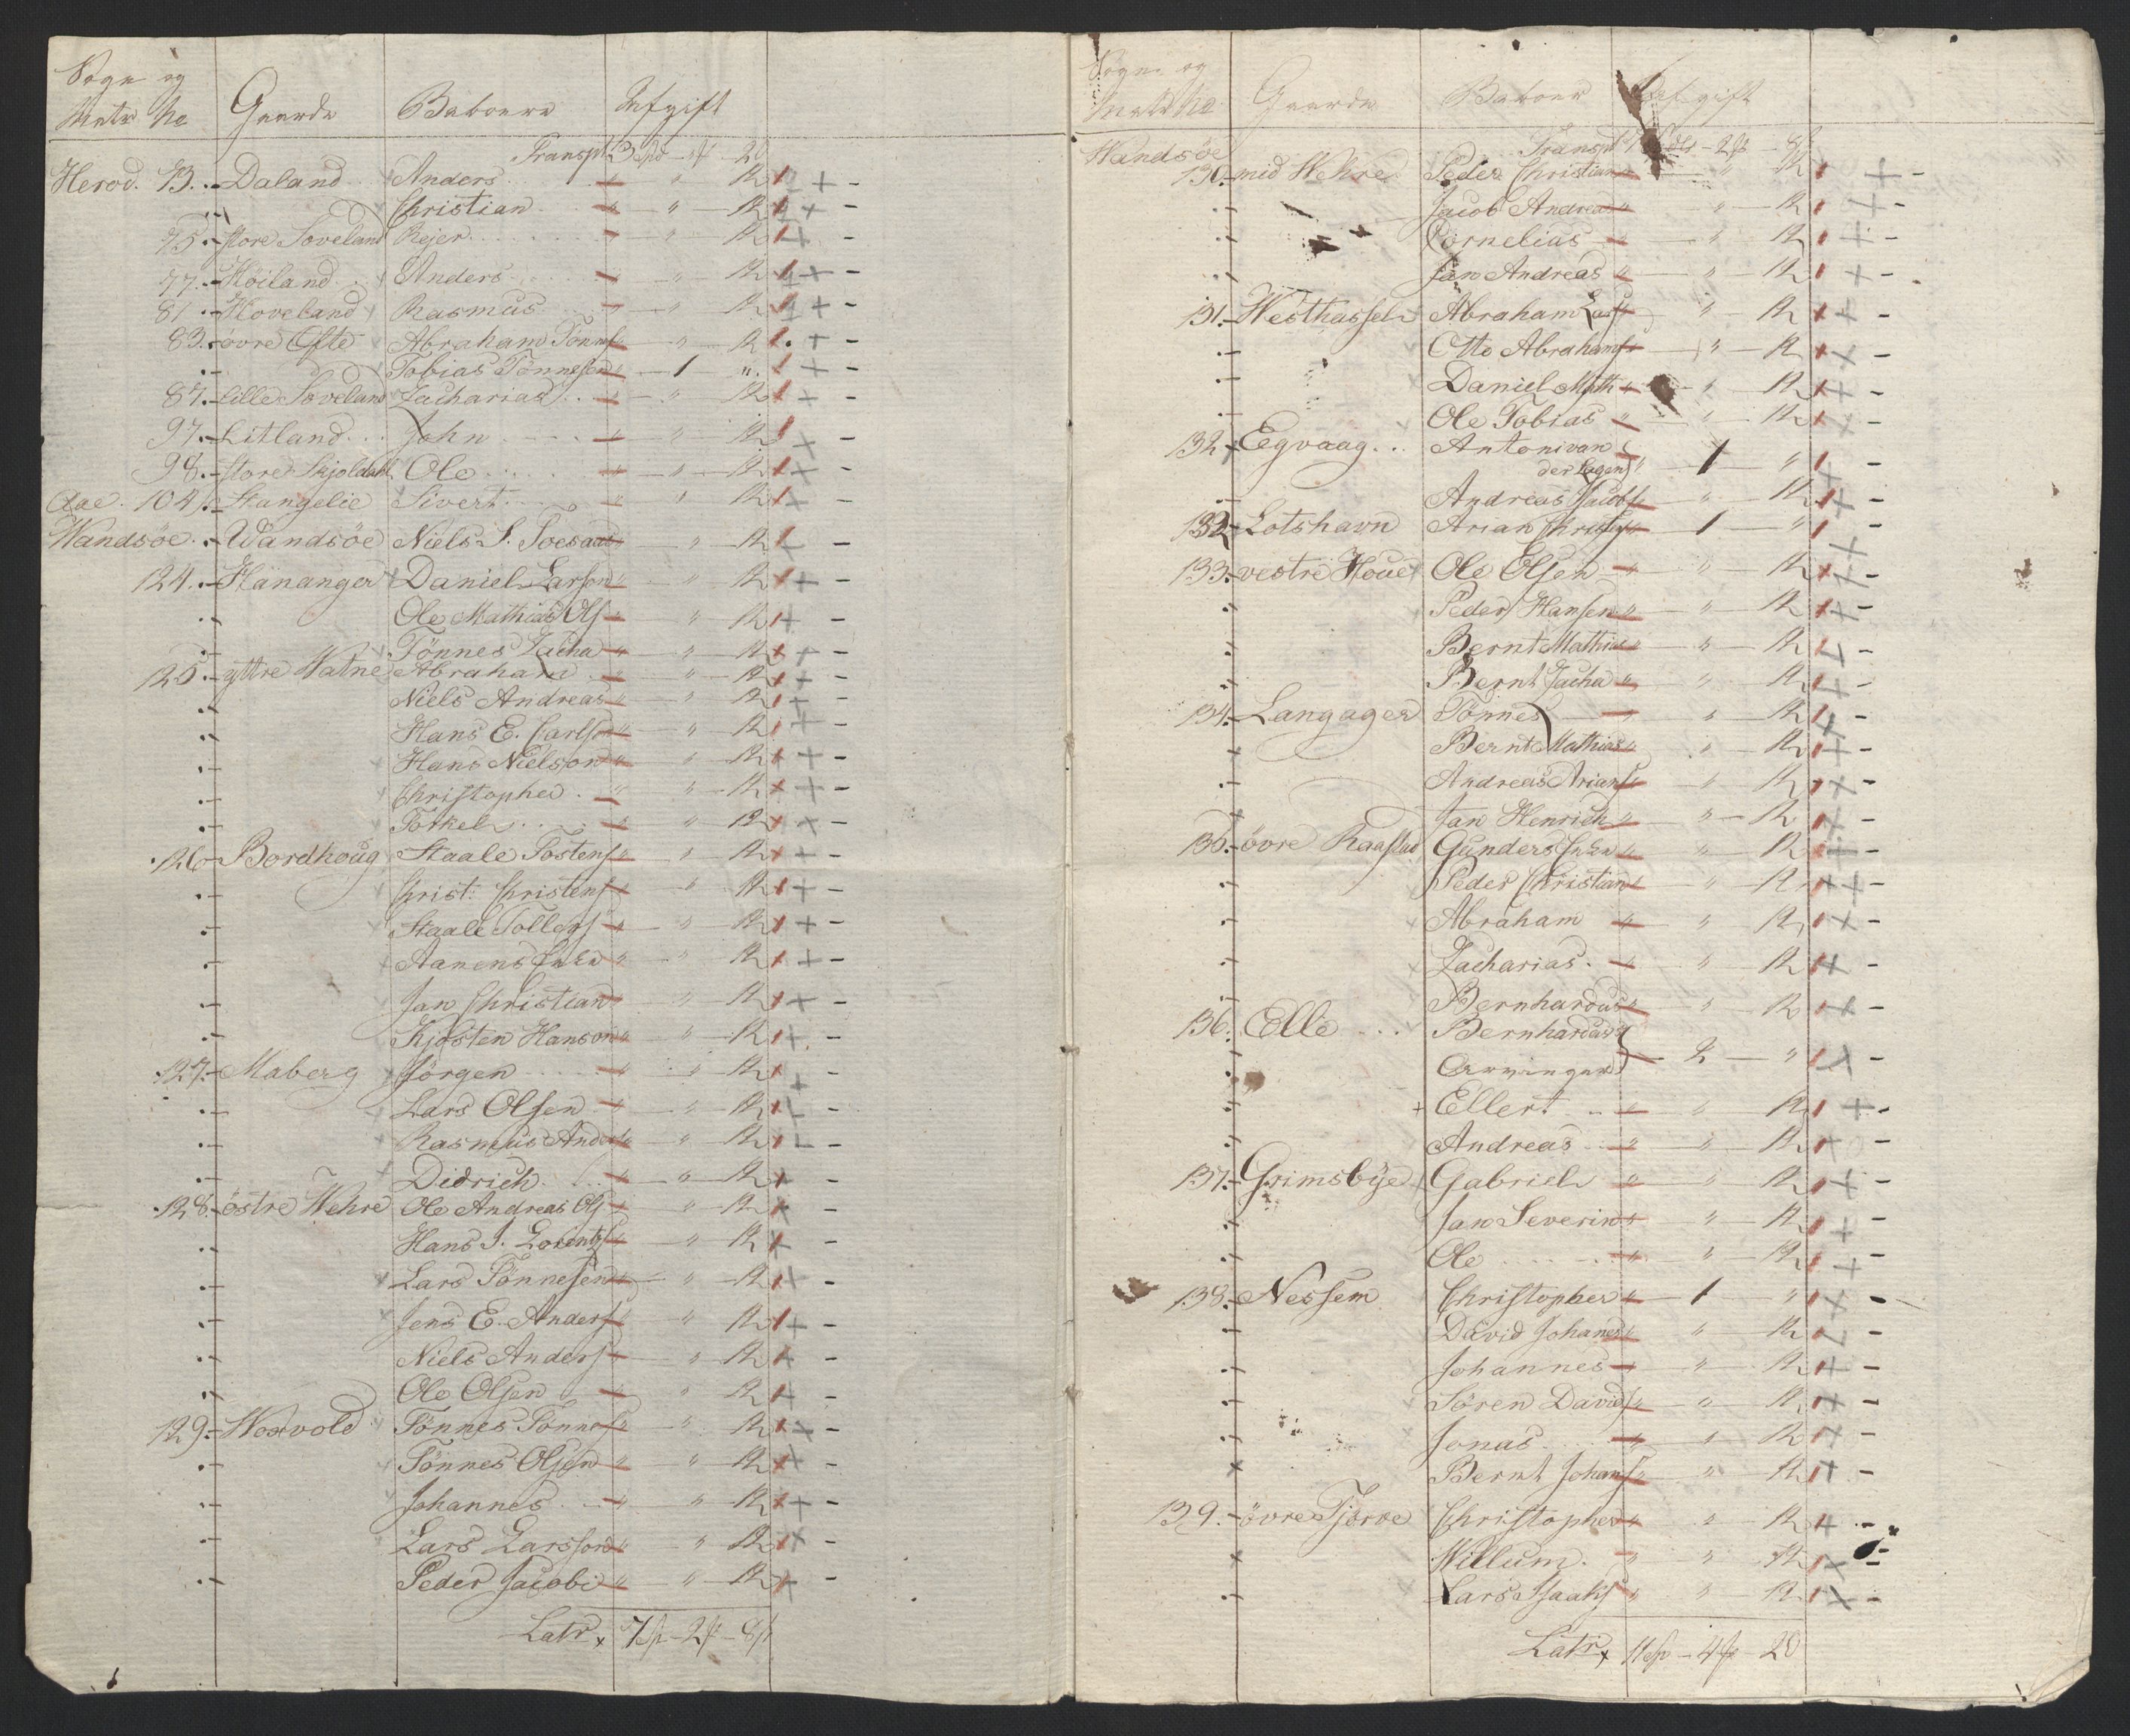 Sogn og
Matr No Gaarde Beboere Afgift
Transpt
Herod. 73. Daland Anders 12
Christian 12
75. store Soveland Rejer 12
77. Høiland Anders 12
81 Hoveland Rasmus 12
83. övre Ofte Abraham Tönnes 12
Tobias Tönnesen 1 "
87. lille Soveland Zacharias 12
97. Litland John 12
98. store Skjoldahl Ole 12
Aae. 104. Stangelie Sivert 12
Wandsöe Wandsöe Niels S. 12
124. Hananger Daniel Larsen 12
Ole Mathias Ols 12
Tönnes Zacha 12
125. yttre Watne Abraham 12
Niels Andreas 12
Hans E. Carlson 12
Hans Nielson 12
Christopher 12
Torkel 12
126 Bordhoug Staale Tostens 12
Christ: Christens 12
Staale Tollefs 12
Aanens Enke 12
Jan Christian 12
Kjösten Hanson 12
127. Maberg Jörgen 12
Lars Olsen 12
Rasmus Ander 12
Didrich 12
128. östre Wehre Ole Andreas Ols 12
Hans J. Lorentz 12
Lars Tönnesen 12
Jens E. Anders 12
Niels Anders 12
Ole Olsen 12
129. Worvold Tönnes Tönnes 12
Tönnes Olsen 12
Johannes 12
Lars Larsson 12
Peder Jacobi 12
Latr 7 Sp - 2 - 8
Sogn og
Matr No Gaarde Beboer Afgift
Wandsöe Transpt 7 - 2 - 8
130. mid Wehre Peder Christian 12
Jacob Andreas 12
Cornelias 12
Jan Andreas 12
131. Westhassel Abraham Lars 12
Otto Abrahams 12
Daniel Math 12
Ole Tobias 12
132 Eegvaag Antoni van
der Lagen 1 "
Andreas Jacobs 12
132 Lotshavn Arian Christens 1 "
133. vestre Houe Ole Olsen 12
Peder Hansen 12
Bernt Mathias 12
Bernt Zacha 12
134. Langager Tönnes 12
Bernt Mathias 12
Andreas Arians 12
Jan Henrich 12
135. övre Raastad Gunders Enke 12
Peder Christian 12
Abraham 12
Zacharias 12
Bernhardus 12
136. Elle Bernhardus
Arvinger 2 "
Ellert 12
Andreas 12
137. Grimsbÿe Gabriel 12
Jan Severin 12
Ole 12
138. Nessem Christopher 1 "
David Johanes 12
Johannes 12
Sören Davids 12
Jonas 12
Bernt Johans 12
139. övre Tjörve Christopher 12
Willum 12
Lars Isaaks 12
Latr 11 Sp - 4 - 20